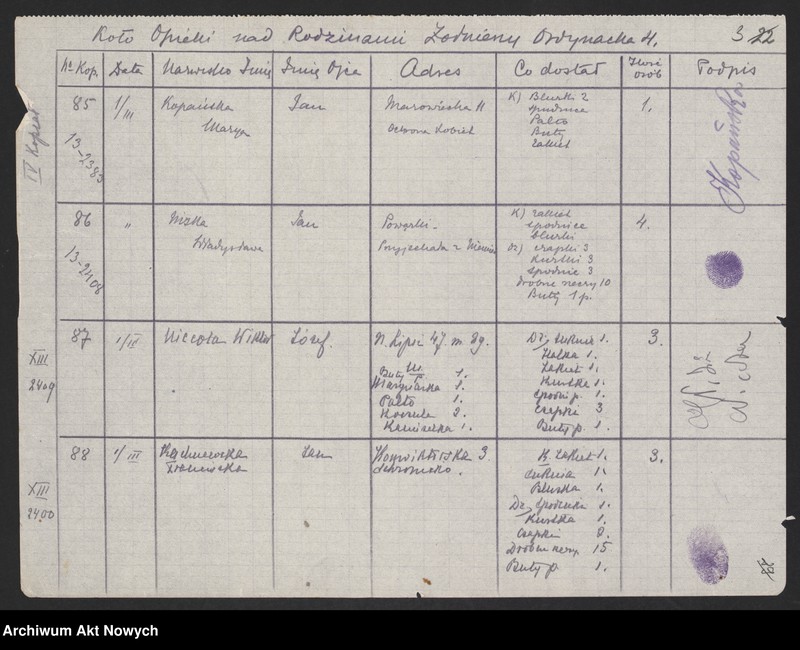 Koło Opieki nad Rodzinami Żołnierzy Ordynacka 4. 3 22
Nr Kop. Data Nazwisko Imię Imię Ojca Adres Co dostał Ilość osób Podpis
IV Kopert
85 1/III Kopańska Jan Marowiecka 11 K) Bluzki 2 1.
Marya Ochrona Kobiet spódnica
Palto
Buty
Żakiet
13-2383
Kopańska
86 " Jan Powązki. K) żakiet 4.
Władysława Przyjechała z spódnice
bluzki
Dz) czapki 3
Kurtki 3
Spódnic 3
drobne rzeczy 10
Buty 1 p.
13-2408
87 1/IV Wiktor Józef. N. Lipie 47 m 89. Dz. suknie 1. 3.
Halka 1.
Buty M. 1. Żakiet 1.
Marynarka 1. Kurtka 1.
Palto 1. 1.
Koszule 2. Czapki 3
Kamizelka 1. Buty p. 1.
XIII
2409
88 1/III Jan 3. K. Żakiet 1. 3.
Franciszka Schronisko. Suknia 1.
Bluzka 1.
Dz. Spódniczki 1.
Kurtka 1.
Czapki 2.
Drobne rzeczy 15
Buty p. 1.
XIII
2400
Archiwum Akt Nowych